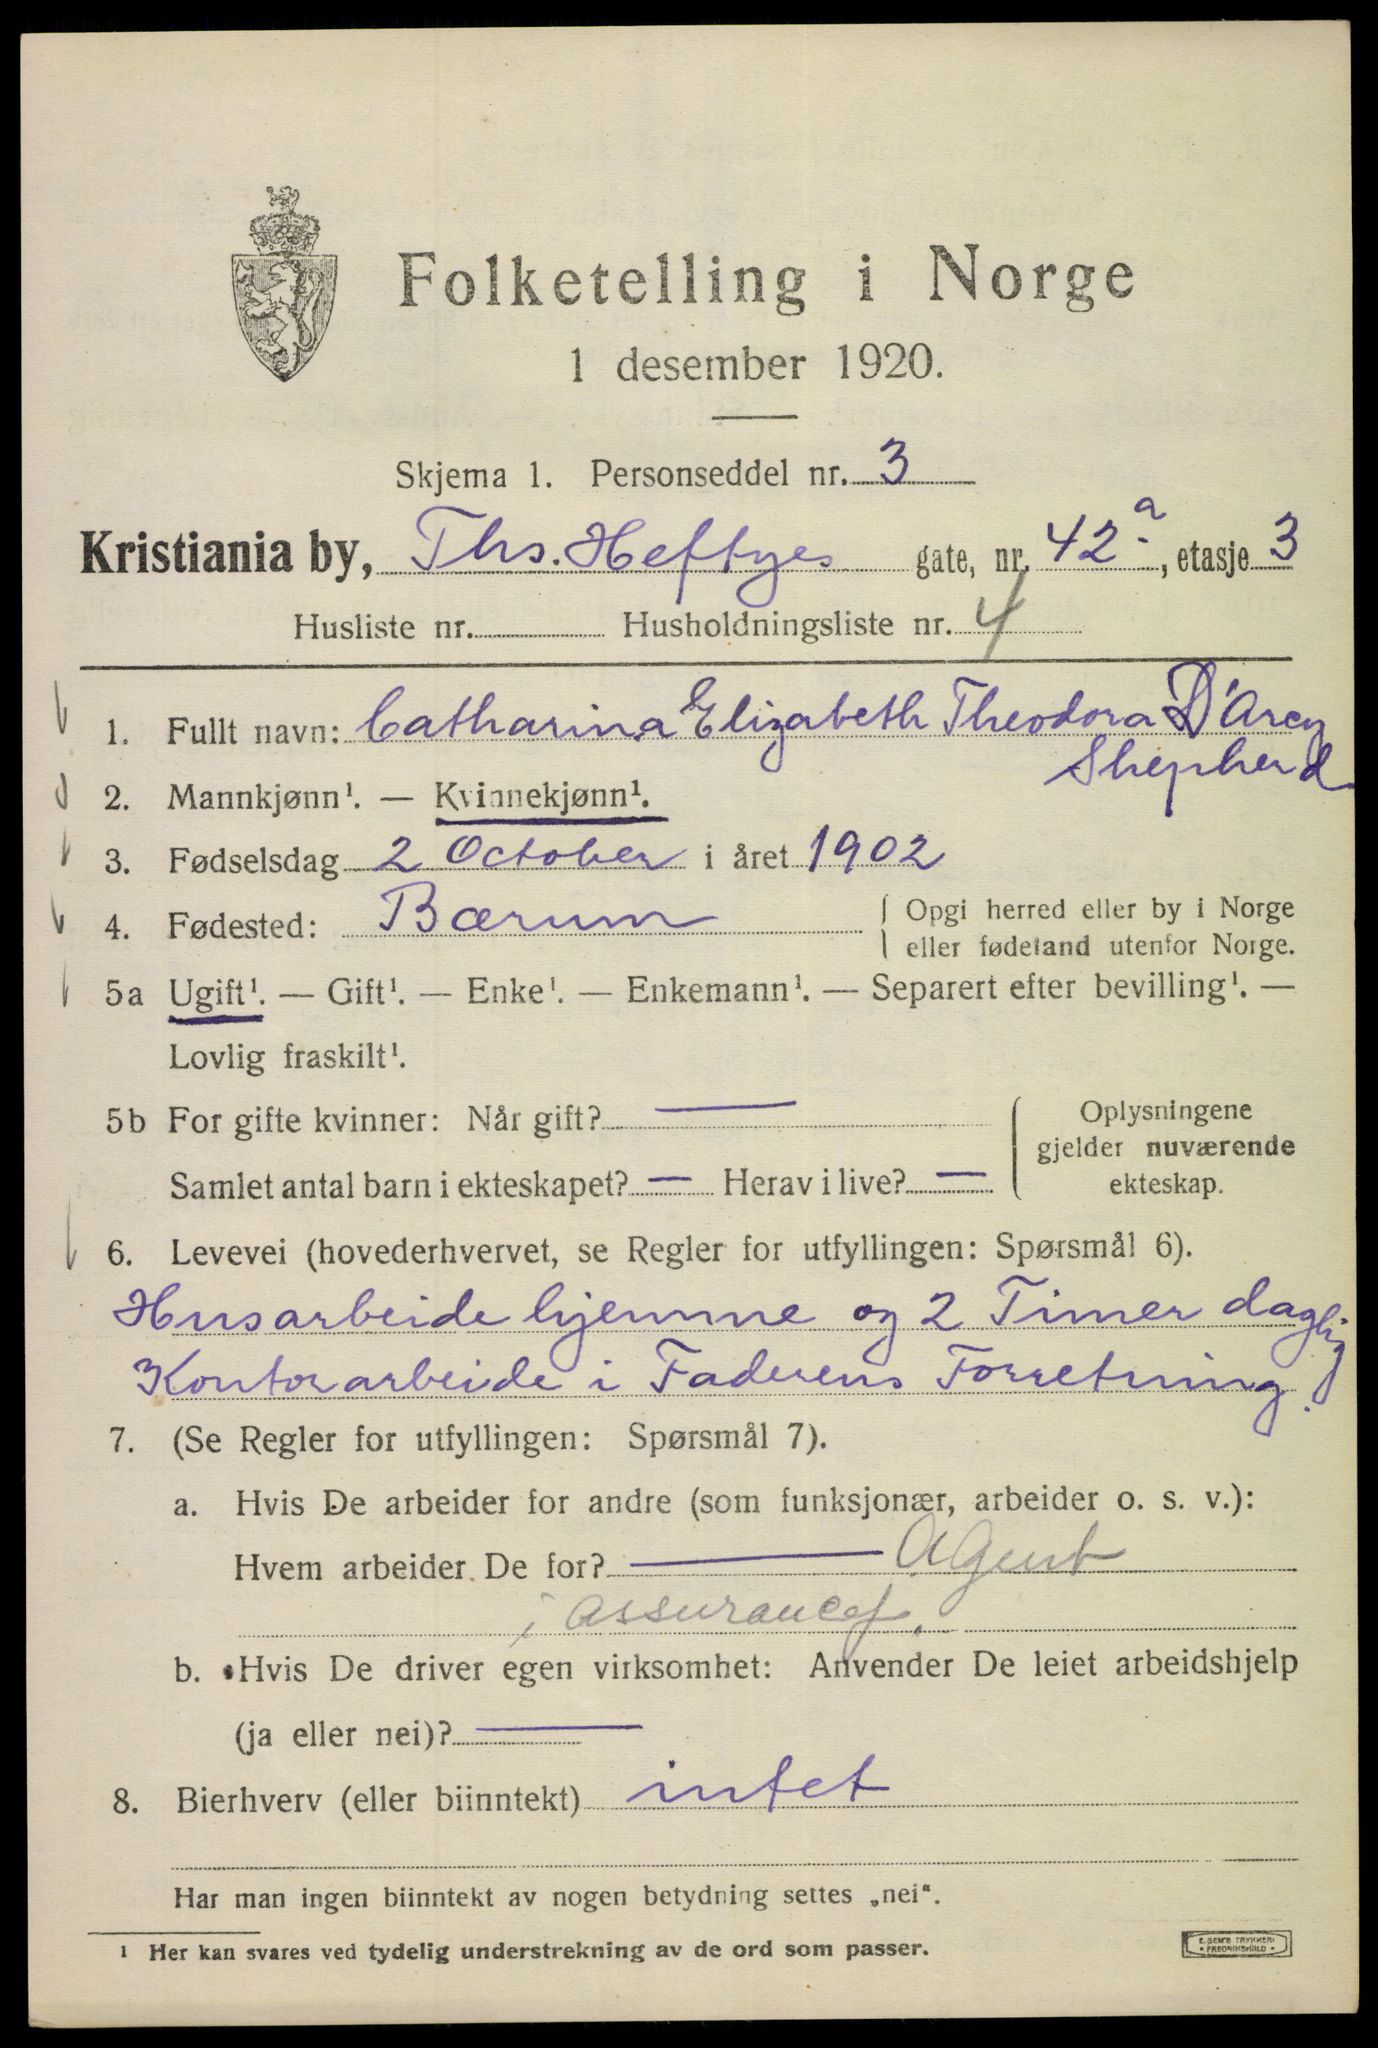 Folketelling i Norge
1 desember 1920.
Skjema 1. Personseddel nr. 3
Kristiania by, Ths. Heftyes gate, nr. 42 a, etasje 3
Husliste nr. Husholdningsliste nr. 4
1. Fullt navn: Catharina Elizabeth Theodora D'Arcy
Shepherd
2. Mannkjønn¹. — Kvinnekjønn¹.
3. Fødselsdag 2 October i året 1902
4. Fødested: Bærum { Opgi herred eller by i Norge
eller fødeland utenfor Norge.
5a Ugift¹. — Gift¹. — Enke¹. — Enkemann¹. — Separert efter bevilling¹. —
Lovlig fraskilt¹.
5b For gifte kvinner: Når gift? — Oplysningene
gjelder nuværende
Samlet antal barn i ekteskapet? — Herav i live? — ekteskap.
6. Levevei (hovederhvervet, se Regler for utfyllingen: Spørsmål 6).
Husarbeide hjemme og 2 Timer daglig
Kontorarbeide i Faderens Forretning.
7. (Se Regler for utfyllingen: Spørsmål 7).
a. Hvis De arbeider for andre (som funksjonær, arbeider o. s. v.):
Hvem arbeider De for? — Agent
i assurancef.
b. Hvis De driver egen virksomhet: Anvender De leiet arbeidshjelp
(ja eller nei)? —
8. Bierhverv (eller biinntekt) intet
Har man ingen biinntekt av nogen betydning settes „nei“.
¹ Her kan svares ved tydelig understrekning av de ord som passer.
E. SEM'S TRYKKERI
FREDRIKSHALD